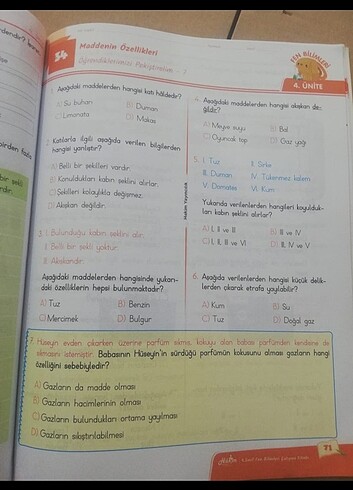 34
Maddenin Özellikleri
Öğrendiklerimizi Pekiştirelim - 1
FEN BİLİMLERİ
4. ÜNİTE
1. Aşağıdaki maddelerden hangisi katı hâldedir?
A) Su buharı
B) Duman
C) Limonata
D) Makas
2. Katılarla ilgili aşağıda verilen bilgilerden
hangisi yanlıştır?
A) Belli bir şekilleri vardır.
B) Konuldukları kabın şeklini alırlar.
C) Şekilleri kolaylıkla değişmez.
D) Akışkan değildir.
3. I. Bulunduğu kabın şeklini alır.
II. Belli bir şekli yoktur.
III. Akışkandır.
Aşağıdaki maddelerden hangisinde yukarı-
daki özelliklerin hepsi bulunmaktadır?
A) Tuz
B) Benzin
C) Mercimek
D) Bulgur
4. Aşağıdaki maddelerden hangisi akışkan de-
ğildir?
A) Meyve suyu
B) Bal
C) Oyuncak top
D) Gaz yağı
5. I. Tuz
II. Sirke
III. Duman
IV. Tükenmez kalem
V. Domates
VI. Kum
Yukarıda verilenlerden hangileri koyulduk-
ları kabın şeklini alırlar?
A) I, II ve III
B) III ve IV
C) I, II, III ve VI
D) II, IV ve V
6. Aşağıda verilenlerden hangisi küçük delik-
lerden çıkarak etrafa yayılabilir?
A) Kum
B) Su
C) Tuz
D) Doğal gaz
7. Hüseyin evden çıkarken üzerine parfüm sıkmış, kokuyu alan babası parfümden kendisine de
sıkmasını istemiştir. Babasının Hüseyin'in sürdüğü parfümün kokusunu alması gazların hangi
özelliğini sebebiyledir?
A) Gazların da madde olması
B) Gazların hacimlerinin olması
C) Gazların bulundukları ortama yayılması
D) Gazların sıkıştırılabilmesi
71